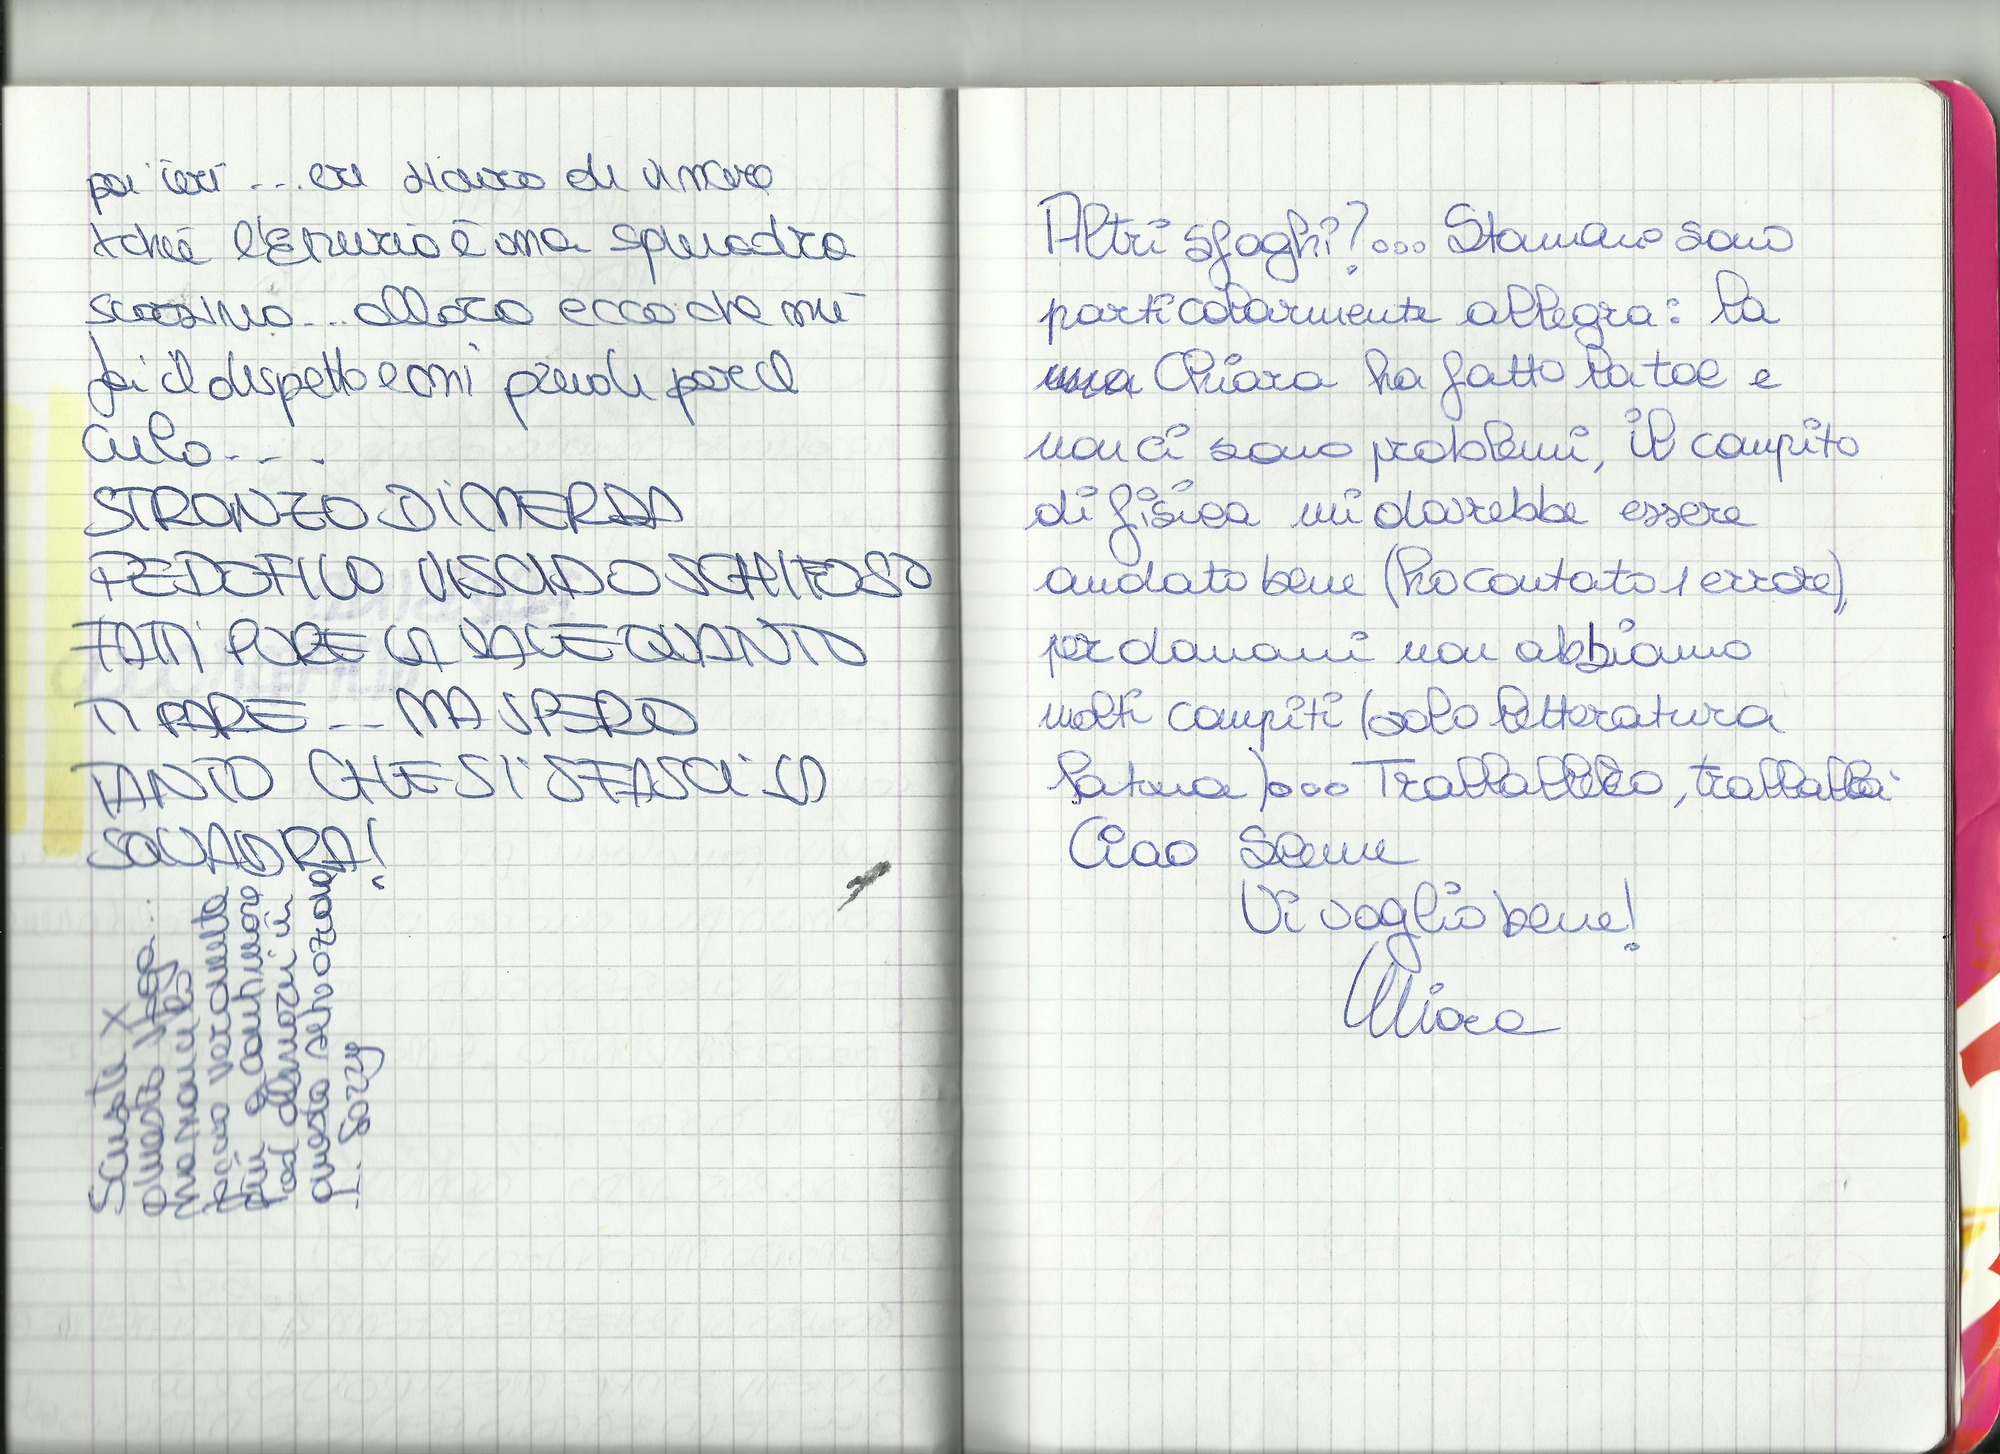 poi ieri ... eri sicuro di vincere
xché l'Etruria è una squadra
scarsina... allora ecco che mi
fai il dispetto e mi prendi per il
culo - - -
STRONZO DI MERDA
PEDOFILO VISCIDO SCHIFOSO
FATTI PURE LA VALLE QUANTO
TI PARE -- MA SPERO
TANTO CHE SI SFASCI LA
SQUADRA!
Scusate x
questo sfogo...
ma non ce la
faccio veramente
più a continuare
ad allenarci in
questa situazione
I. Sorry
Altri sfoghi?... Stamani sono
particolarmente allegra: la
Chiara ha fatto la tac e
non ci sono problemi, il compito
di fisica mi dovrebbe essere
andato bene (ho contato 1 errore),
per domani non abbiamo
molti compiti (solo letteratura
latina)... Trallallero, trallallà
Ciao Sceme
Vi voglio bene!